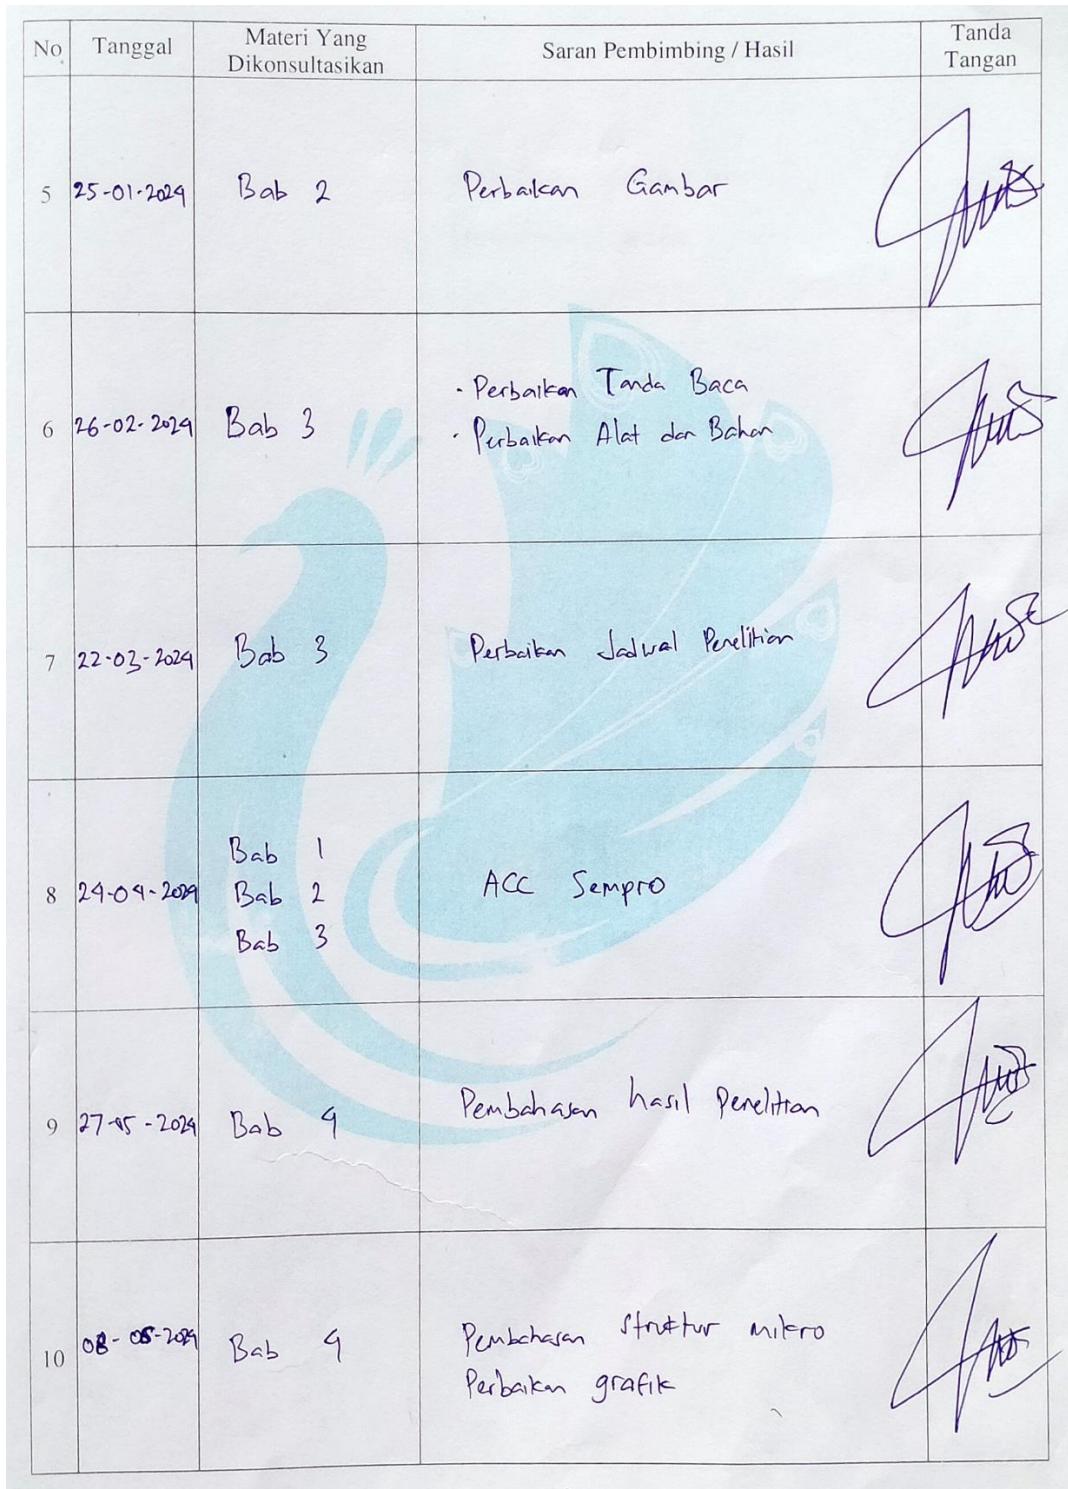 No Tanggal Materi Yang Dikonsultasikan Saran Pembimbing / Hasil Tanda Tangan
5 25-01-2024 Bab 2 Perbaikan Gambar
6 26-02-2024 Bab 3 · Perbaikan Tanda Baca
· Perbaikan Alat dan Bahan
7 22-03-2024 Bab 3 Perbaikan Jadwal Penelitian
Bab 1
8 24-04-2024 Bab 2 ACC Sempro
Bab 3
9 27-05-2024 Bab 4 Pembahasan hasil Penelitian
10 08-05-2024 Bab 4 Pembahasan struktur mikro
Perbaikan grafik